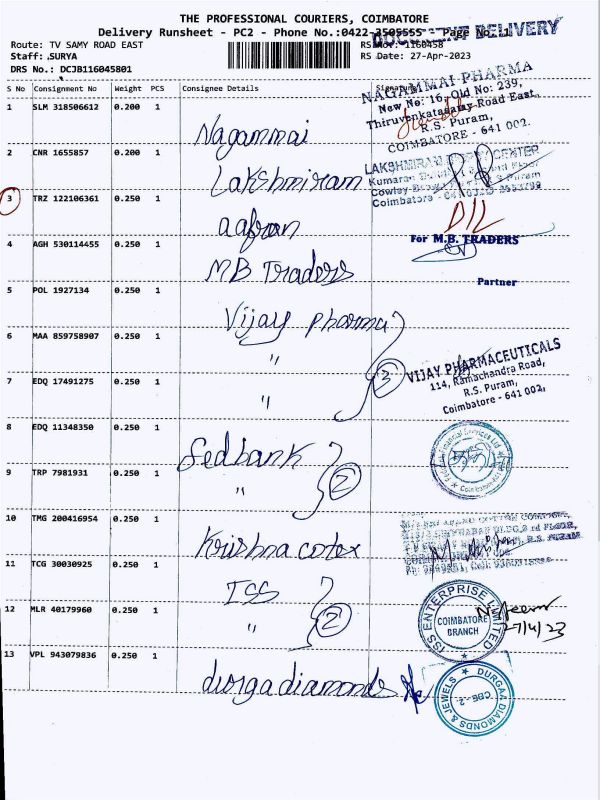 THE PROFESSIONAL COURIERS, COIMBATORE
Delivery Runsheet - PC2 - Phone No.:0422-3505555 Page No.:1
DOCUMENT DELIVERY
Route: TV SAMY ROAD EAST
RS No.: 1160458
Staff: SURYA
RS Date: 27-Apr-2023
DRS No.: DCJB116045801
S No Consignment No Weight PCS Consignee Details Signature
1 SLM 318506612 0.200 1 Nagammai
NAGAMMAI PHARMA
New No: 16, Old No: 239,
Thiruvenkatasamy Road East,
R.S. Puram,
COIMBATORE - 641 002.
2 CNR 1655857 0.200 1 Lakshmiram
LAKSHMIRAM CENTER
Kumaran
Cowley Puram
Coimbatore
3 TRZ 122106361 0.250 1 aafran
D/L
4 AGH 530114455 0.250 1 MB Traders
For M.B. TRADERS
Partner
5 POL 1927134 0.250 1 Vijay pharma
6 MAA 859758907 0.250 1 "
7 EDQ 17491275 0.250 1 "
3
VIJAY PHARMACEUTICALS
114, Ramachandra Road,
R.S. Puram,
Coimbatore - 641 002.
8 EDQ 11348350 0.250 1 fedbank
Financial Services Ltd
9 TRP 7981931 0.250 1 "
2
10 TMG 200416954 0.250 1 Krishna cotex
R.S. PURAM
11 TCG 30030925 0.250 1 ISS
12 MLR 40179960 0.250 1 "
2
ISS ENTERPRISE LIMITED
COIMBATORE
BRANCH
27/4/23
13 VPL 943079836 0.250 1 durga diamonds
DURGA DIAMONDS & JEWELS
CBE-2